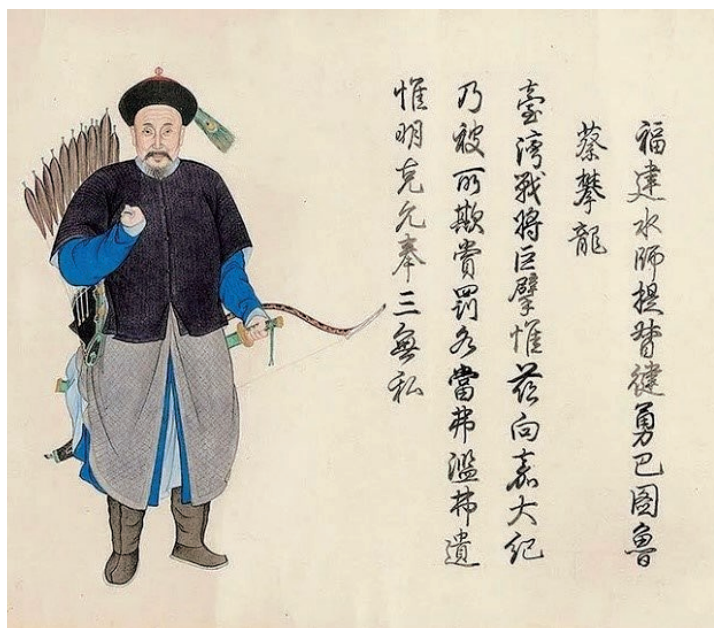 福建水師提督健勇巴图魯
蔡攀龍
臺湾戰將巨擘惟茲向嘉大紀
乃被所欺賞罰各當弗濫弗遺
惟明克允奉三無私